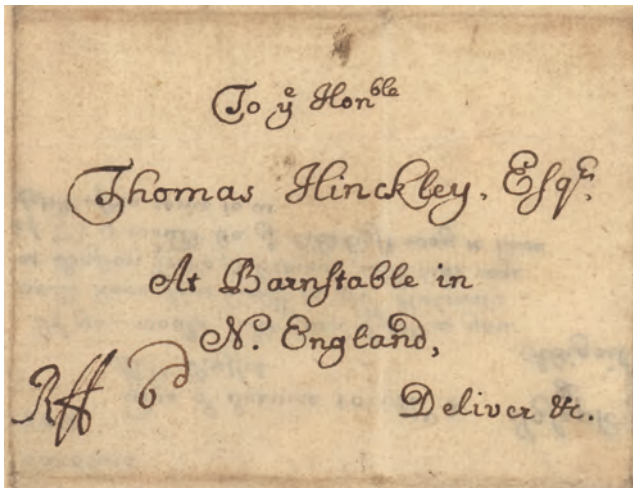 To yᵉ Honᵇˡᵉ
Thomas Hinckley, Esqʳ.
At Barnstable in
N. England,
Deliver &c.